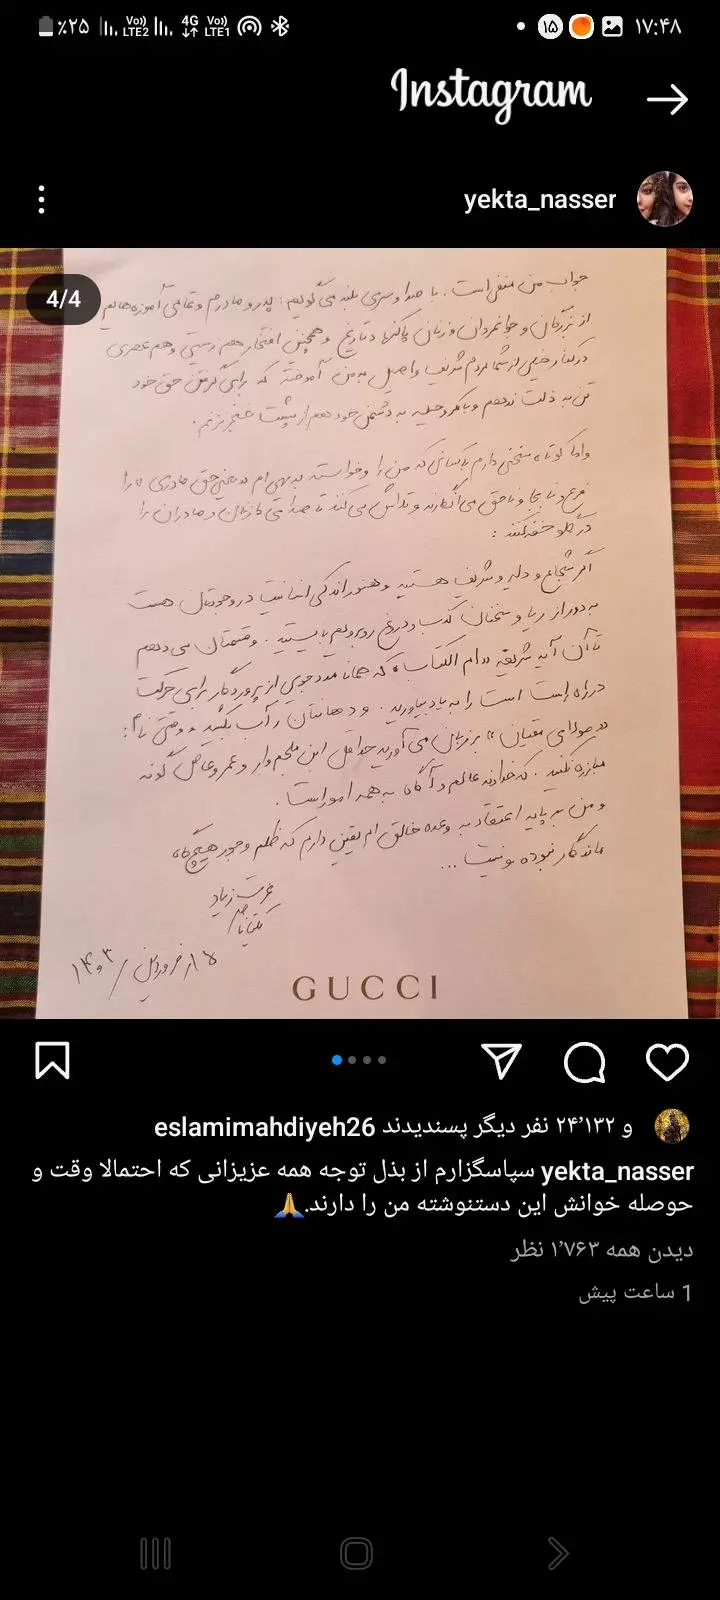 ۱۷:۴۸
۱۵
4G
Vo)) LTE1
Vo)) LTE2
٪۲۵
Instagram
yekta_nasser
4/4
جواب من منفی است. با صدا و سری بلند می‌گویم: پدر و مادرم و تمامی آموزه‌هایم
از بزرگان و جوانمردان و زنان پاکنهاد تاریخ و همچنین افتخار هم زیستی و هم عصری
در کنار خیلی از شما مردم شریف و اصیل به من آموخته که برای گرفتن حق خود
تن به ذلت ندهم و با مکر و حیله به دشمن خود هم از پشت خنجر نزنم.
و اما کوتاه سخنی دارم با کسانی که من را و خواسته بدیهی ام یعنی حق مادری را
نابجا و ناحق می‌انگارند و تلاش می‌کنند تا صدای زنان و مادران را
در گلو خفه کنند:
اگر شجاع و دلیر و شریف هستید و هنوز اندکی انسانیت در وجودتان هست
به دور از ریا و سخنان کذب و دروغ روبرویم بایستید. و قسمتان می‌دهم
تا آن آیه شریفه «ام الکتاب» که همانا مددجویی از پروردگار برای حرکت
در راه راست است را به یاد بیاورید. و دهانتان را آب بکشید و وقتی نام:
«مولای متقیان» بر زبان می‌آورید حداقل ابن ملجم وار و عمروعاص گونه
مبارزه نکنید. که خداوند عالم و آگاه به همه امور است.
و من بر پایه اعتقاد به وعده خالق ام یقین دارم که ظلم و جور هیچگاه
ماندگار نبوده و نیست ...
عزت زیاد
یکتا ناصر
فروردین / ۱۴۰۳
GUCCI
و ۲۴٬۱۳۲ نفر دیگر پسندیدند eslamimahdiyeh26
yekta_nasser سپاسگزارم از بذل توجه همه عزیزانی که احتمالا وقت و
حوصله خوانش این دستنوشته من را دارند.🙏
دیدن همه ۱٬۷۶۳ نظر
1 ساعت پیش